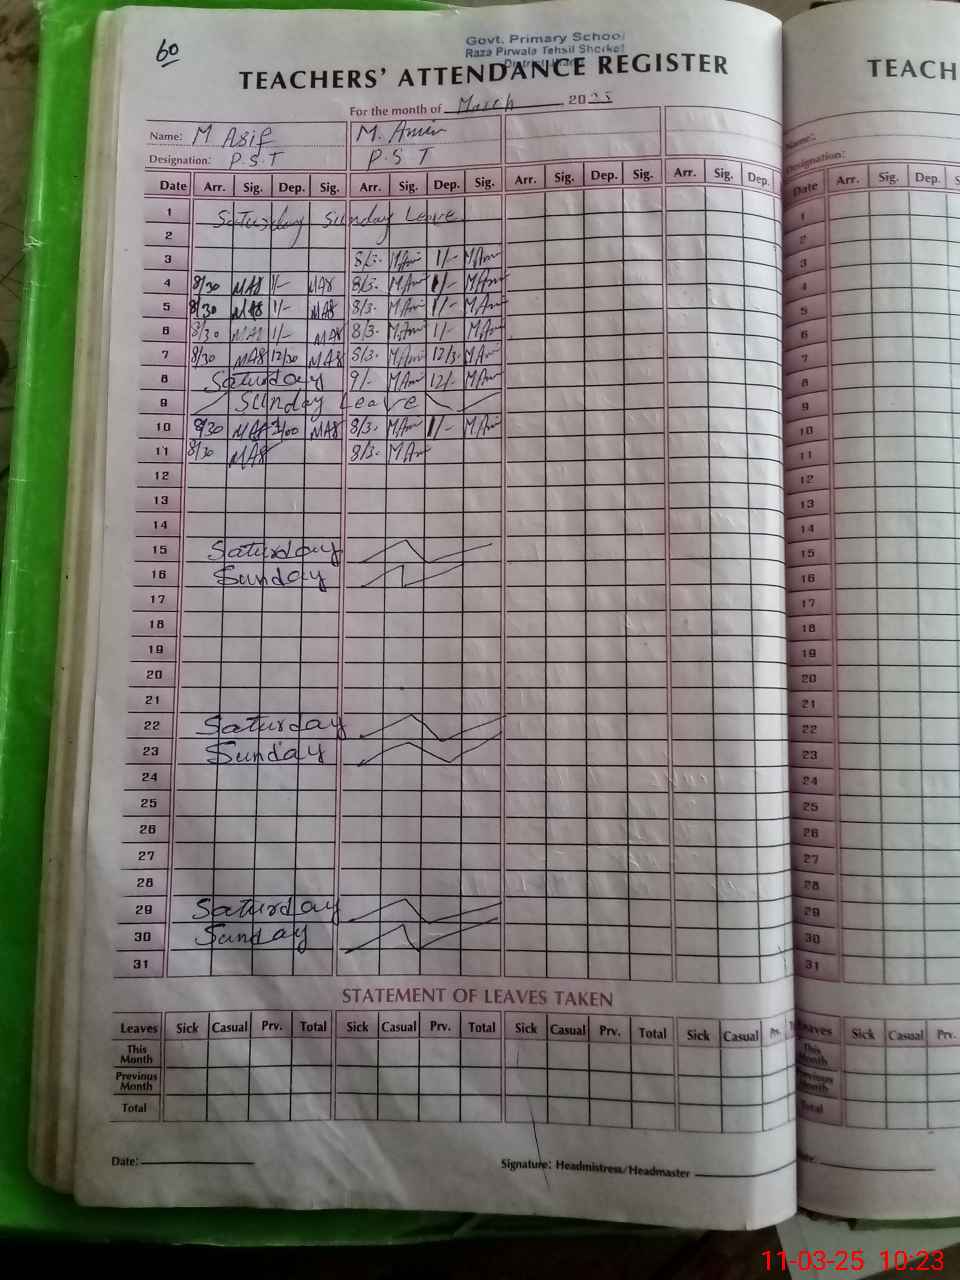 60
Govt. Primary School
Raza Pirwala Tehsil Shorkot
TEACHERS' ATTENDANCE REGISTER
For the month of March 2025
Name: M Asif M. Amin
Designation: P.S.T P.S T
Date Arr. Sig. Dep. Sig. Arr. Sig. Dep. Sig. Arr. Sig. Dep. Sig. Arr. Sig. Dep.
1 Saturday Sunday Leave
2
3 8/3- MAmi 1/- MAmi
4 8/30 MAS 1/- MAS 8/3- MAmi 1/- MAmi
5 8/30 MAS 1/- MAS 8/3- MAmi 1/- MAmi
6 8/30 MAS 1/- MAS 8/3- MAmi 1/- MAmi
7 8/30 MAS 12/30 MAS 8/3- MAmi 12/3- MAmi
8 Saturday 9/- MAmi 12/- MAmi
9 Sunday Leave
10 8/30 MAS 1/00 MAS 8/3- MAmi 1/- MAmi
11 8/30 MAS 8/3- MAmi
12
13
14
15 Saturday
16 Sunday
17
18
19
20
21
22 Saturday
23 Sunday
24
25
26
27
28
29 Saturday
30 Sunday
31
STATEMENT OF LEAVES TAKEN
Leaves Sick Casual Prv. Total Sick Casual Prv. Total Sick Casual Prv. Total Sick Casual Prv.
This
Month
Previous
Month
Total
Date:
Signature: Headmistress/Headmaster
TEACH
Name:
Designation:
Date Arr. Sig. Dep.
1
2
3
4
5
6
7
8
9
10
11
12
13
14
15
16
17
18
19
20
21
22
23
24
25
26
27
28
29
30
31
Leaves Sick Casual Prv.
This
Month
Previous
Month
Total
11-03-25 10:23